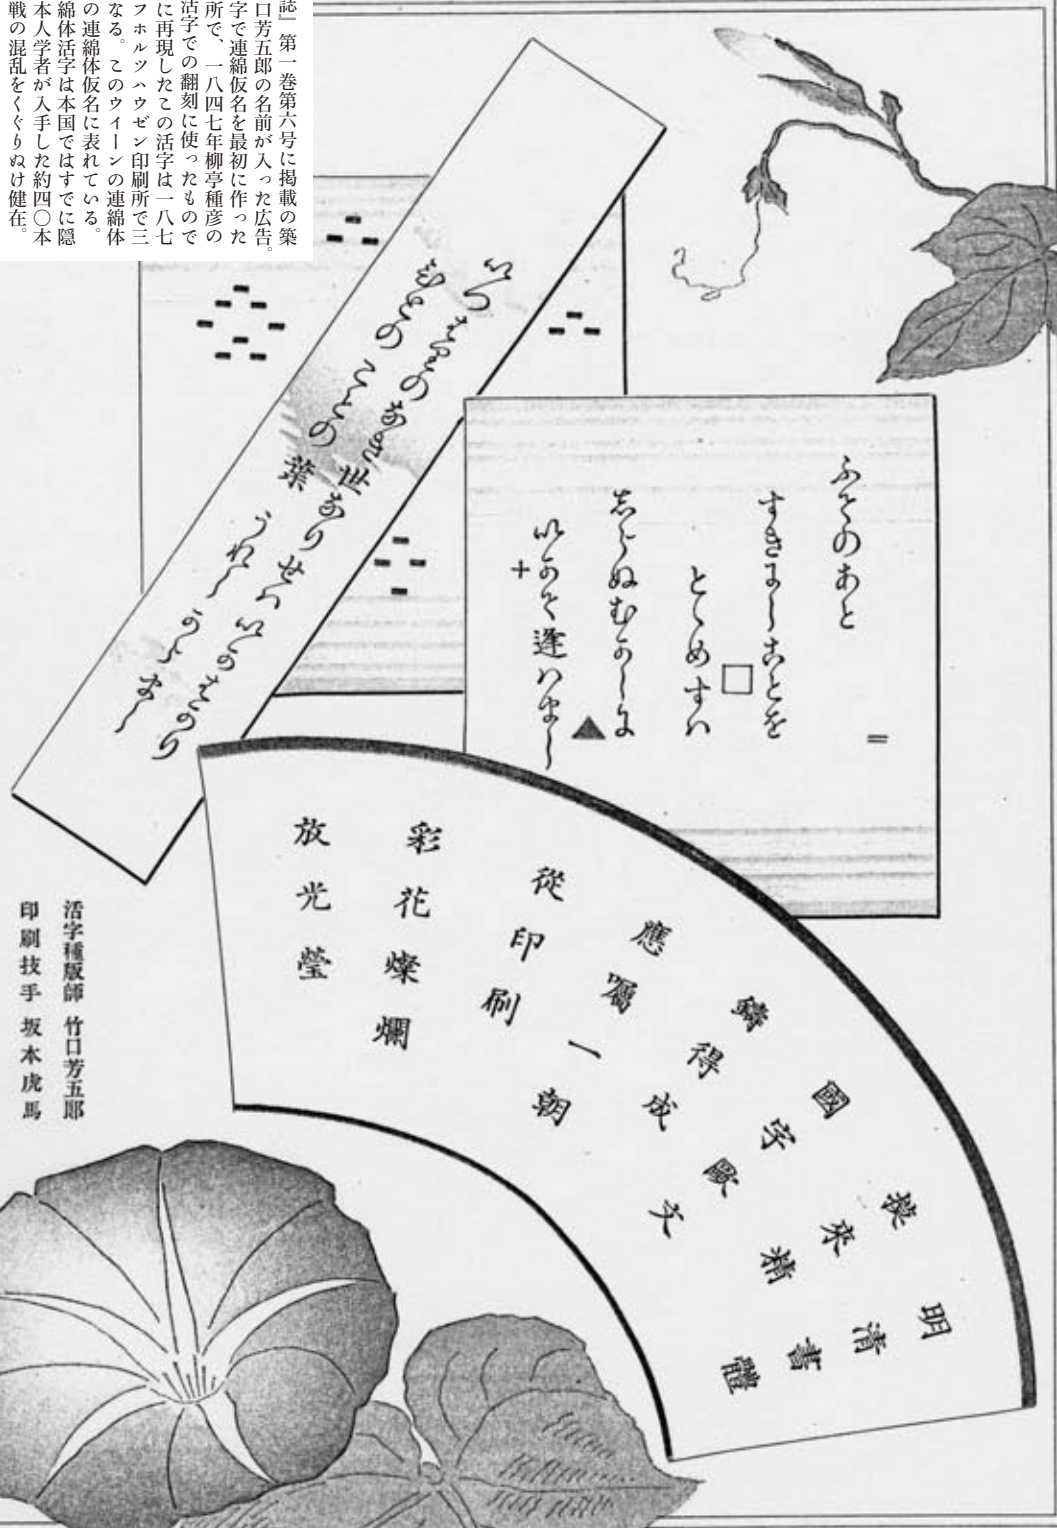 誌』第一巻第六号に掲載の築
口芳五郎の名前が入った広告。
字で連綿仮名を最初に作った
所で、一八四七年柳亭種彦の
活字での翻刻に使ったもので
に再現したこの活字は一八七
フホルツハウゼン印刷所で三
なる。このウイーンの連綿体
の連綿体仮名に表れている。
綿体活字は本国ではすでに隠
本人学者が入手した約四〇本
戦の混乱をくぐりぬけ健在。
いつはりのなき世なりせハいかはかり
ひとのことの葉うれしからまし
ふてのあと
すきにしことを
とゝめすハ
しらぬむかしに
いかて逢ハまし
明清書體
來精
國字歐文
鑄得成
應囑一朝
從印刷
彩花燦爛
放光瑩
活字種版師 竹口芳五郎
印刷技手 坂本虎馬